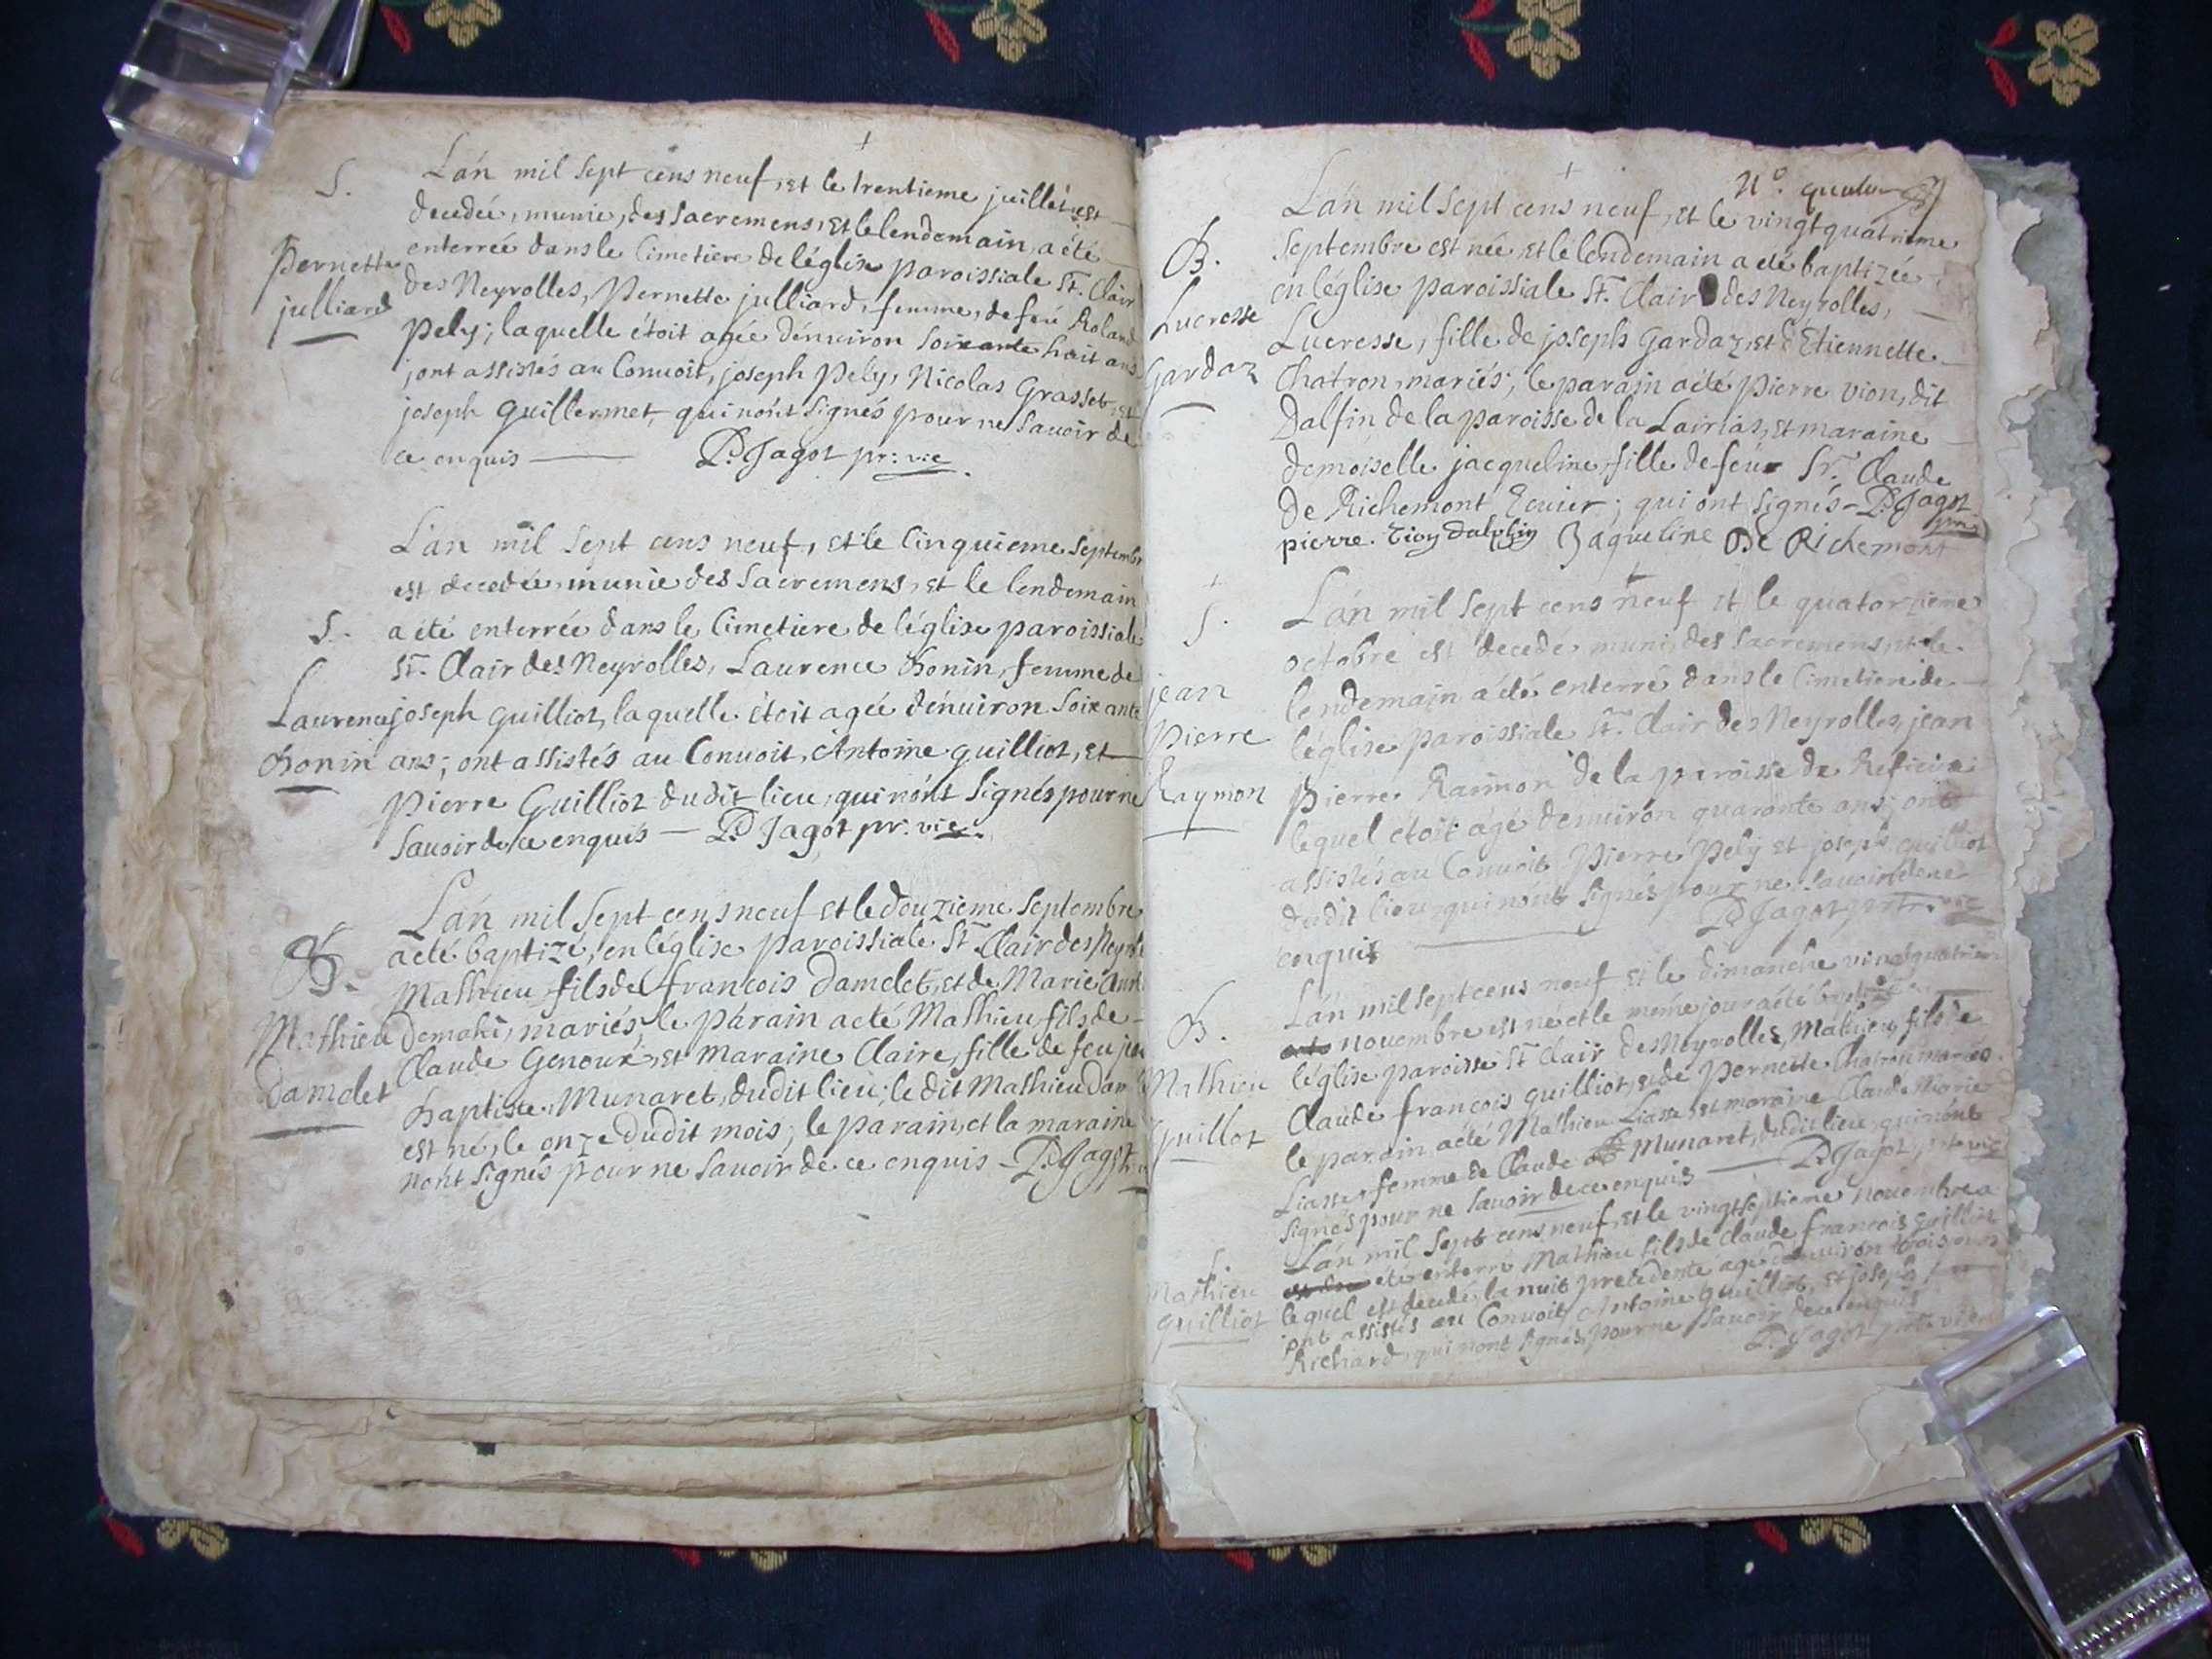 S.
Pernette
julliard
L'an mil sept cens neuf, et le trentieme juillét est
decedée, munie, des sacremens, et le lendemain, a été
enterrée dans le Cimetiere de léglise paroissiale St. Clair
des Neyrolles, Pernette julliard, femme, de feu Roland
Pely; laquelle étoit agée dénuiron soixante huit ans
,ont assistés au Conuoit, joseph Pely, Nicolas Grasset, et
joseph Guillermet, qui nónt signés pour ne sauoir de
ce enquis — P. Jagot pr: vic
S.
Laurence
Bonin
L'an mil sept cens neuf, et le Cinquieme septembre
est decedée, munie des sacremens, et le lendemain
a été enterrée dans le Cimetiere de léglise paroissiale
St. Clair des Neyrolles, Laurence Bonin, femme de
joseph Guilliot, laquelle étoit agée dénuiron soixante
ans; ont assistés au Conuoit, Antoine guilliot, et
Pierre Guilliot dudit lieu, qui nónt signés pour ne
sauoir de ce enquis — P. Jagot pr: vic.
B.
Mathieu
Damdet
L'an mil sept cens neuf et le douzieme septembre
a été baptizé, en léglise paroissiale St. Clair des Neyrolles
Mathieu fils de francois Damdet, et de Marie Anne
Demahi, mariés, le párain a eté Mathieu fils de
Claude Genoux, et maraine Claire, fille de feu jean
Baptiste Munaret, dudit lieu; le dit Mathieu Dam
est né, le onze dudit mois; le parain, et la maraine
nónt signés pour ne sauoir de ce enquis — P. Jagot
N°.
B.
Lucresse
Gardaz
L'an mil sept cens neuf, et le vingtquatrieme
septembre est née, et le lendemain a eté baptizée
en léglise paroissiale St. Clair des Neyrolles,
Lucresse, fille de joseph Gardaz, et d'Etiennette
Chatron, mariés; le parain a été pierre vion, dit
Dalfin de la paroisse de la Lairias, et maraine
demoiselle jacqueline, fille de feu Sr. Claude
De Richemont Ecuier; qui ont signés - P. Jagot
pierre. Vion dalphin Jaqueline De Richemont
S.
jean
Pierre
Raymon
L'an mil sept cens neuf et le quatorzieme
octobre est decede, muni, des sacremens, et le
lendemain a été enterré dans le Cimetiere de
léglise paroissiale St. Clair des Neyrolles, jean
Pierre Raimon de la paroisse de
lequel étoit ágé denuiron quarante ans; ont
assistés au Conuoit Pierre Pely et joseph guilliot
dudit lieu, qui nónt signés pour ne sauoir de ce
enquis — P. Jagot prtr. vic
B.
Mathieu
Guillot
L'an mil sept cens neuf et le dimanche vingtquatrieme
novembre est né et le même jour a été baptizé en
léglise paroisse St Clair des Neyrolles, Mathieu fils de
Claude françois guilliot, et de Pernette Chatron mariés
le parain a eté Mathieu Liasse, et maraine Claude Marie
Liasse, femme de Claude Munaret, dudit lieu, qui nónt
signés pour ne sauoir de ce enquis — P. Jagot prtr vic
S.
Mathieu
guilliot
L'an mil sept cens neuf, et le vingtseptieme nouembre a
été enterré Mathieu fils de Claude francois guilliot
lequel est decedé, la nuit precedente agé denuiron trois jours
,ont assistés au Conuoit, Antoine guilliot, et joseph
Richard, qui nont signés, pour ne sauoir de ce enquis
P. Jagot prt. vic